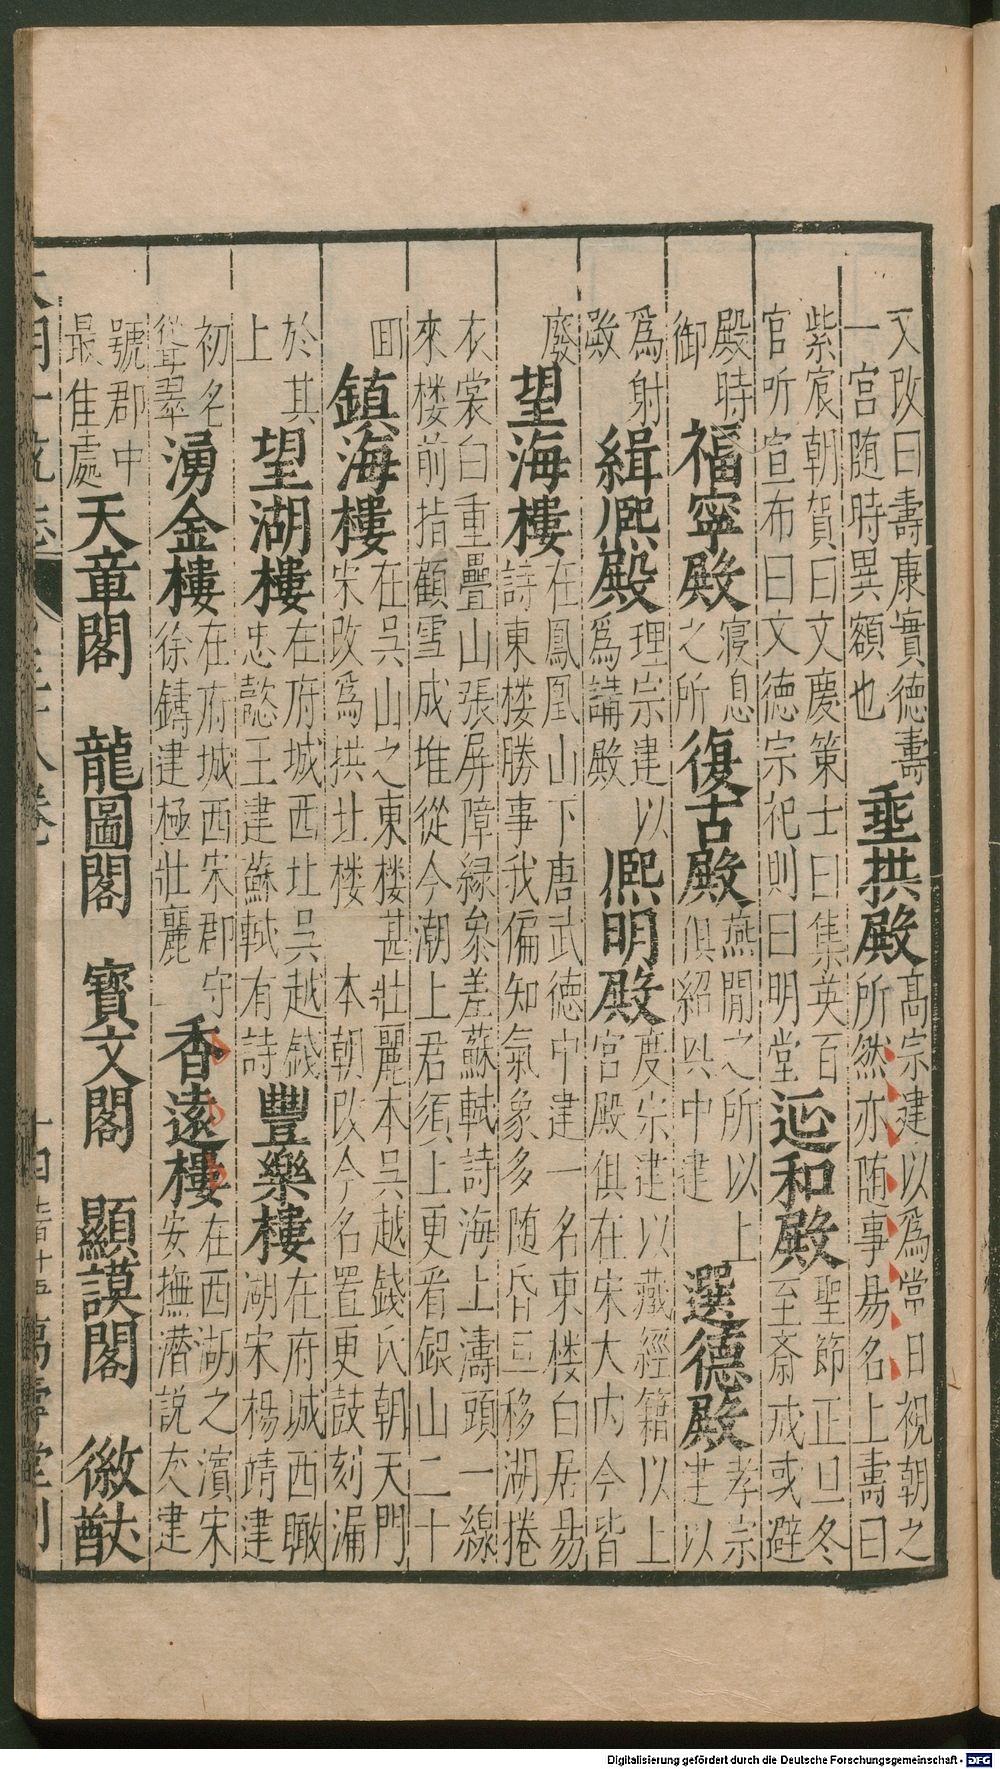 又改曰壽康實德壽
一宮随時異額也
垂拱殿
高宗建以爲常日視朝之
所然亦随事易名上壽曰
紫宸朝賀曰文慶策士曰集英百
官听宣布曰文德宗祀則曰明堂
延和殿
聖節正旦冬
至斎戒或避
殿時
御
福寧殿
寢息
之所
復古殿
燕閒之所以上
俱紹興中建
選德殿
孝宗
建以
爲射
殿
緝熈殿
理宗建以
爲講殿
熈明殿
度宗建以藏經籍以上
宮殿俱在宋大内今皆
廢
望海樓
在鳳凰山下唐武德中建一名東楼白居易
詩東楼勝事我偏知氣象多随昏旦移湖捲
衣裳白重疊山張屏障緑參差蘇軾詩海上濤頭一線
來楼前指顧雪成堆從今潮上君須上更看銀山二十
回
鎮海樓
在吳山之東楼甚壯麗本吳越錢氏朝天門
宋改爲拱北楼 本朝改今名置更鼓刻漏
於其
上
望湖樓
在府城西北吳越錢
忠懿王建蘇軾有詩
豐樂樓
在府城西瞰
湖宋楊靖建
初名
聳翠
湧金樓
在府城西宋郡守
徐鑄建極壯麗
香遠樓
在西湖之濱宋
安撫潜説友建
號郡中
最佳處
天章閣 龍圖閣 寳文閣 顯謨閣 徽猷
十四
七百十五
萬壽堂刊
Digitalisierung gefördert durch die Deutsche Forschungsgemeinschaft - DFG